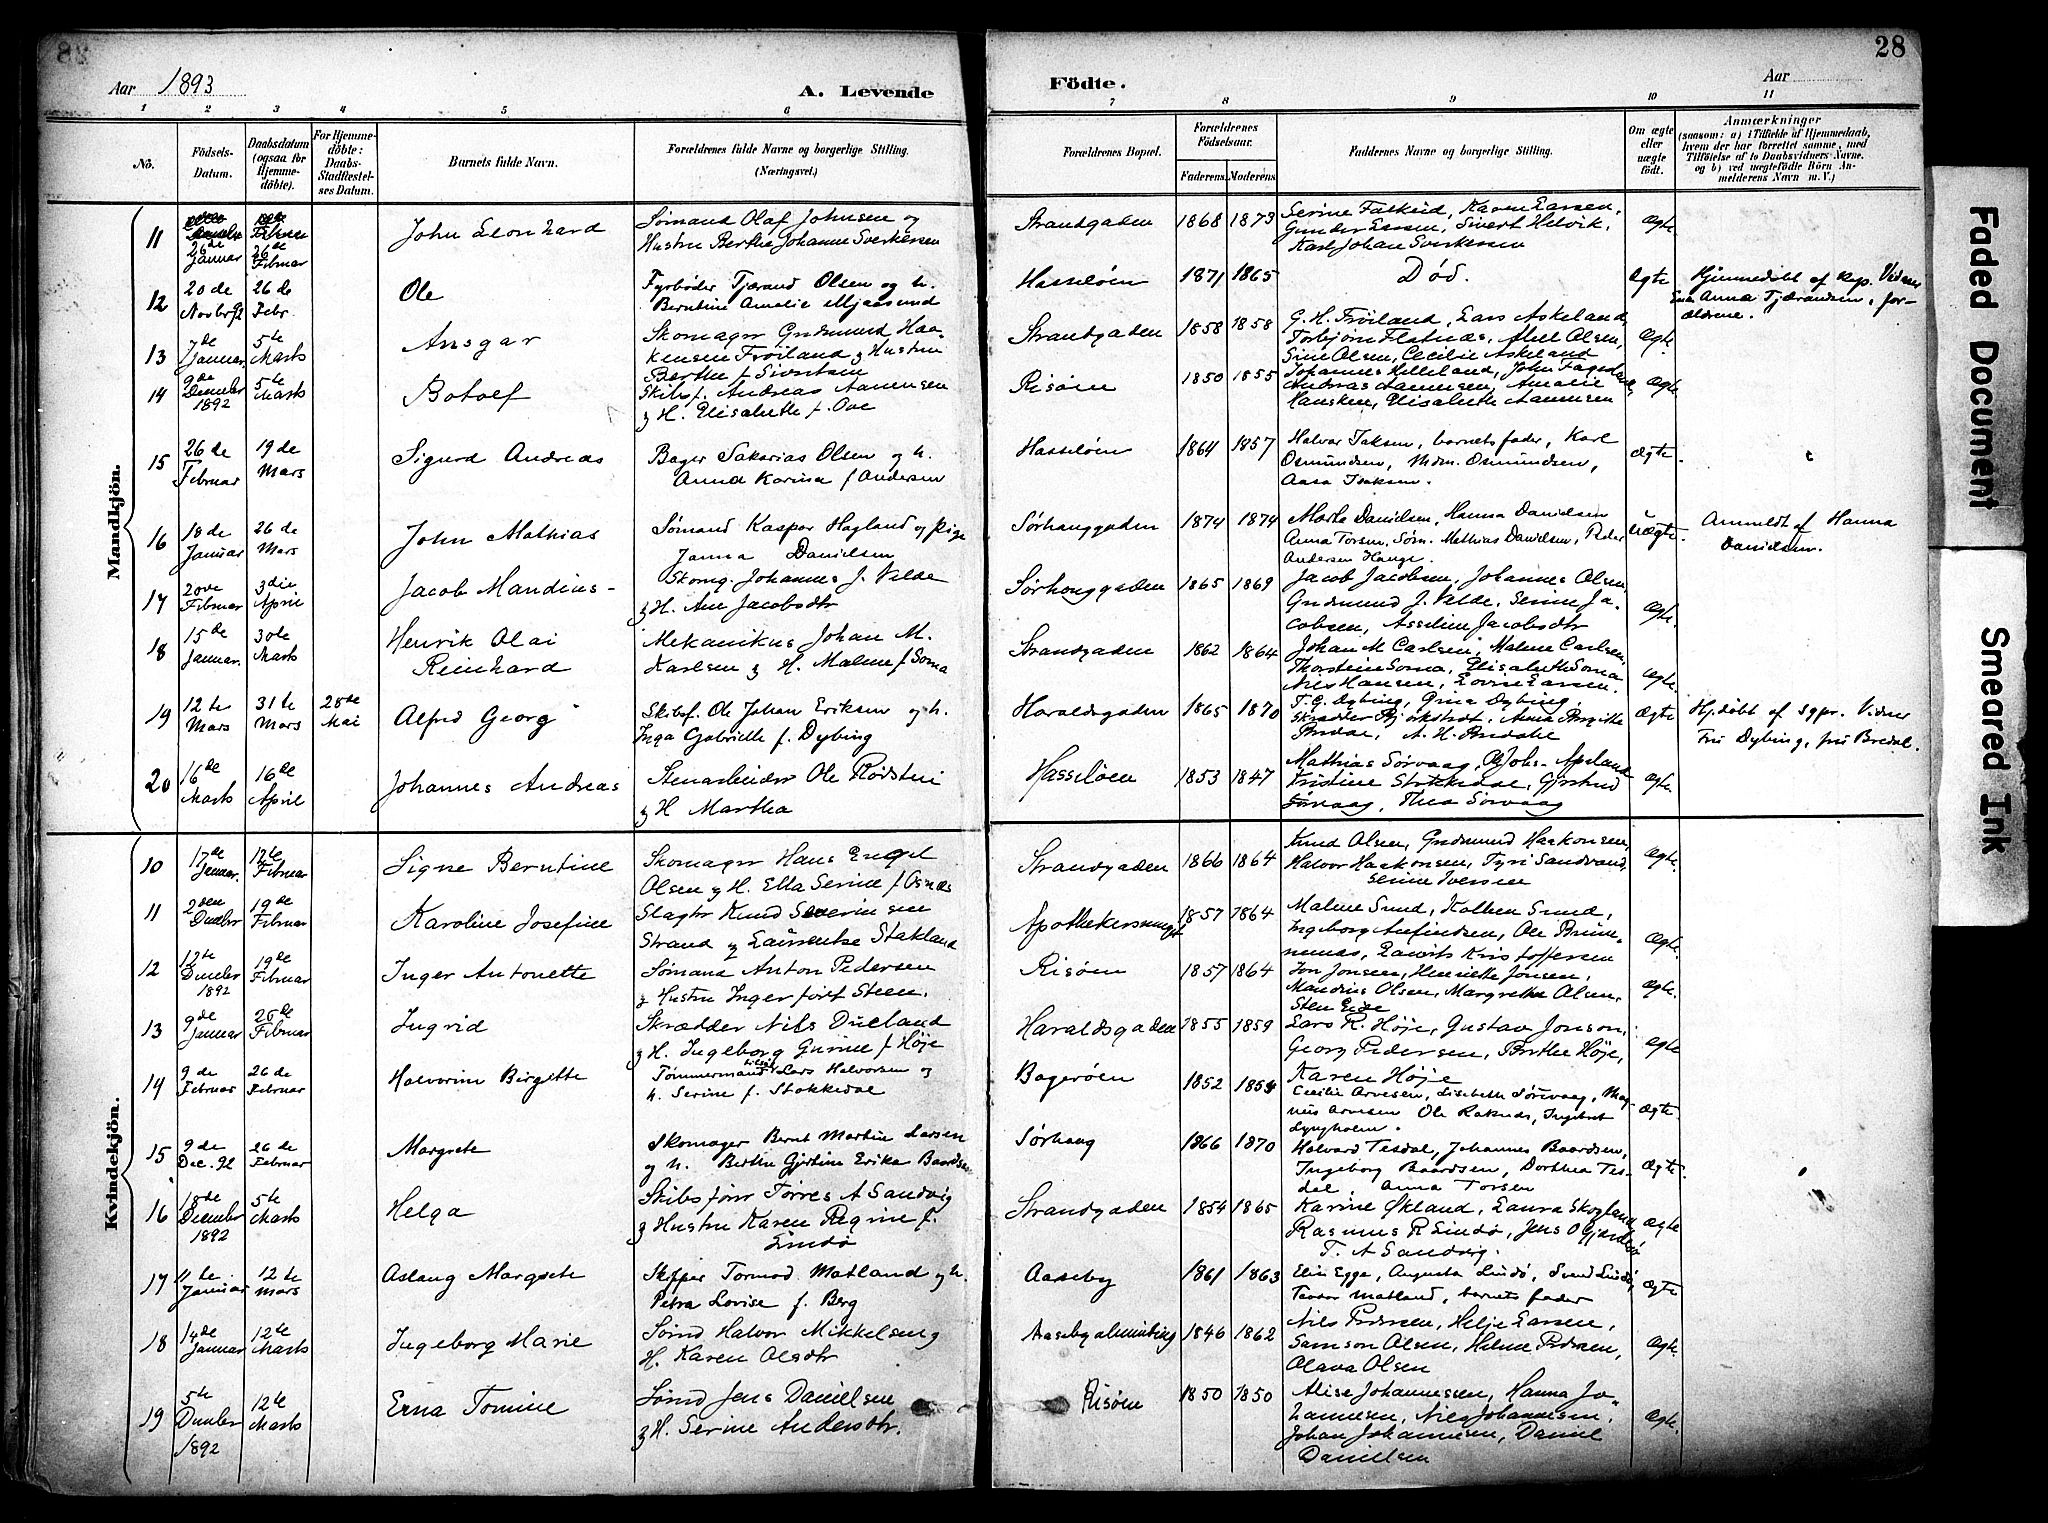 28
Aar 1893
A. Levende
Födte.
Aar
1 2 3 4 5 6 7 8 9 10 11
No.
Födsels-Datum.
Daabsdatum (ogsaa för Hjemme-döbte).
For Hjemme-döbte: Daabs-Stadfæstelses Datum.
Barnets fulde Navn.
Forældrenes fulde Navne og borgerlige Stilling. (Næringsvei.)
Forældrenes Bopæl.
Forældrenes Födselsaar.
Faderens. Moderens.
Faddernes Navne og borgerlige Stilling.
Om ægte eller uægte födt.
Anmærkninger (saasom: a) i Tilfælde af Hjemmedaab, hvem der har forrettet samme, med Tilföielse af to Daabsvidners Navne. og b) ved uægtefödte Börn Anmelderens Navn m. V.)
Mandkjön.
11 26de Januar 26de Februar John Leonhard Sømand Olaf Johnsen og Hustru Berthe Johanne Sverkersen Strandgaden 1868 1873 Serine Falkeid, Karen Larsen, Gunder Larsen, Sivert Helvik, Karl Johan Sverkersen ægte
12 20de Novbr 92 26de Febr. Ole Fyrbøder Tjærand Olsen og h. Berntine Amalie Mjaasund Hasseløen 1871 1865 Død. ægte Hjemmedøbt af Vidner Anna Tjærandsen, forældrene.
13 7de Januar 5te Marts Ansgar Skomager Gudmund Haakensen Frøiland & Hustru Berthe f. Sivertsen Strandgaden 1858 1858 G. H. Frøiland, Lars Askeland, Torbjørn Flatnæs, Abel Olsen, Sine Olsen, Cecilie Askeland ægte
14 9de December 1892 5te Marts Botolf Skibsf. Andreas Aanensen & H. Elisabeth f. Ove Risøen 1850 1855 Johannes Helleland, John Andreas Aanensen, Amalie Hansken, Elisabeth Aanensen ægte
15 26de Februar 19de Mars Sigurd Andreas Bager Sakarias Olsen og h. Anna Karina f Andersen Hasseløen 1864 1857 Halvor Isaksen, barnets fader, Karl Osmundsen, Mdm. Osmundsen, Aasa Isaksen. ægte
16 18de Januar 26de Mars John Mathias Sømand Kaspar Hagland og pige Janna Danielsen Sørhauggaden 1874 1874 Marta Danielsen, Hanna Danielsen Anna Torsen, Søm. Mathias Danielsen, Peder Andersen Hauge. uægte. Anmeldt af Hanna Danielsen.
17 20de Februar 3die April Jacob Mandius Skomg. Johannes J. Valde & H. Ane Jacobsdtr Sørhauggaden 1865 1869 Jacob Jacobsen, Johannes Olsen, Gudmund J. Valde, Serine Jacobsen, Asseline Jacobsdtr ægte.
18 15de Januar. 30te Marts Henrik Olai Reinhard Mekanikus Johan M. Karlsen & H. Malene f Soma Strandgaden 1862 1864 Johan M Carlsen, Malene Carlsen, Thorsteine Soma, Elisabeth Soma Nils Hansen, Lovise Larsen. ægte.
19 12te Mars 31te Mars 28de Mai Alfred Georg Skibsf. Ole Johan Eriksen og h. Inga Gabrielle f. Dybing Haraldsgaden 1865 1870 T. G. Dybing, Gina Dybing Skrædder ægte Hj.døbt af Vidner Fru Dybing, fru Bredal.
20 16de Marts 16de April Johannes Andreas Stenarbeider Ole & H Martha Hasseløen 1853 1847 Mathias Sørvaag, Kristine Stokkedal, Gjertrud Sørvaag, Thea Sørvaag ægte
Kvindekjön.
10 17de Januar. 12te Februar Signe Berntine Skomager Hans Engel Olsen & H. Ella Serine f Osnæs Strandgaden 1866 1864 Knud Olsen, Gudmund Haakonsen, Halvor Haakonsen, Tyri Sandvand, Serine Iversen ægte.
11 2den Decbr 19de Februar Karoline Josefine Slagtr Knud Severinsen Strand & Laurentse Stakland 1857 1864 Malene Sund, Ingeborg Anfindsen, Ole Kristoffersen ægte.
12 12te December 1892 19de Februar Inger Antonette Sømand Anton Pedersen & Hustru Inger født Steen. Risøen 1857 1864 Jon Jonsen, Henriette Jonsen, Mandius Olsen, Margrethe Olsen, Sten Eide ægte.
13 9de Januar 26de Februar Ingrid Skrædder Nils Dueland & H. Ingeborg Gurine f Høje Haraldsgaden 1855 1859 Lars R. Høje, Gustav Jonson, Georg Pedersen, Berthe Høje, Karen Høje ægte
14 9de Februar 26de Februar Halvorine Birgitte Tømmermand Lars Halvorsen og h. Serine f. Stokkedal Bagerøen 1852 1854 Cecilie Arvesen, Lisebeth Sørvaag, Magnus Arvesen Ole Raknes, Ingebret Lyngholm. ægte.
15 9de Dec. 92 26de Februar Margrete Skomager Bernt Martin Larsen og h. Berthe Gjertine Erika Baardsen Sørhaug 1866 1870 Halvard Tesdal, Johannes Baardsen, Ingeborg Baardsen, Dorthea Tesdal, Anna Torsen ægte.
16 18de December 1892 5te Marts Helga Skibsfører Tørres A Sandvig & Hustru Karen Regine f. Lindø Strandgaden 1854 1865 Karine Økland, Laura Skogland, Rasmus R Lindø, Jens O T. A Sandvig. ægte
17 11te Januar 12te Mars Aslaug Margrete Skipper Tormod Matland og h. Petra Lovise f. Berg Aaseby 1861 1863 Elen Egge, Augusta Lindø, Svend Lindø, Matland, barnets fader ægte
18 14de Januar 12te Marts Ingeborg Marie Sømd Halvor Mikkelsen & H. Karen Olsdtr 1846 1862 Nils Pedersen, Helje Larsen, Samson Olsen, Helene Pedersen, Olava Olsen ægte.
19 5te December 1892 12te Marts Erna Tomine Sømd Jens Danielsen & H. Serine Andersdtr. Risøen 1850 1850 Alise Johannessen, Hanna Johannesen, Nils Johannesen, Johan Johannesen, Daniel Danielsen ægte.
Faded Document
Smeared Ink